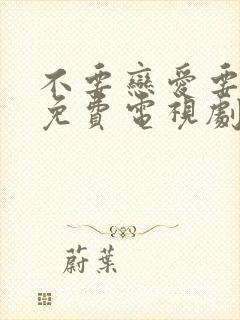 不要戀愛要
免費電視劇
蔚葉